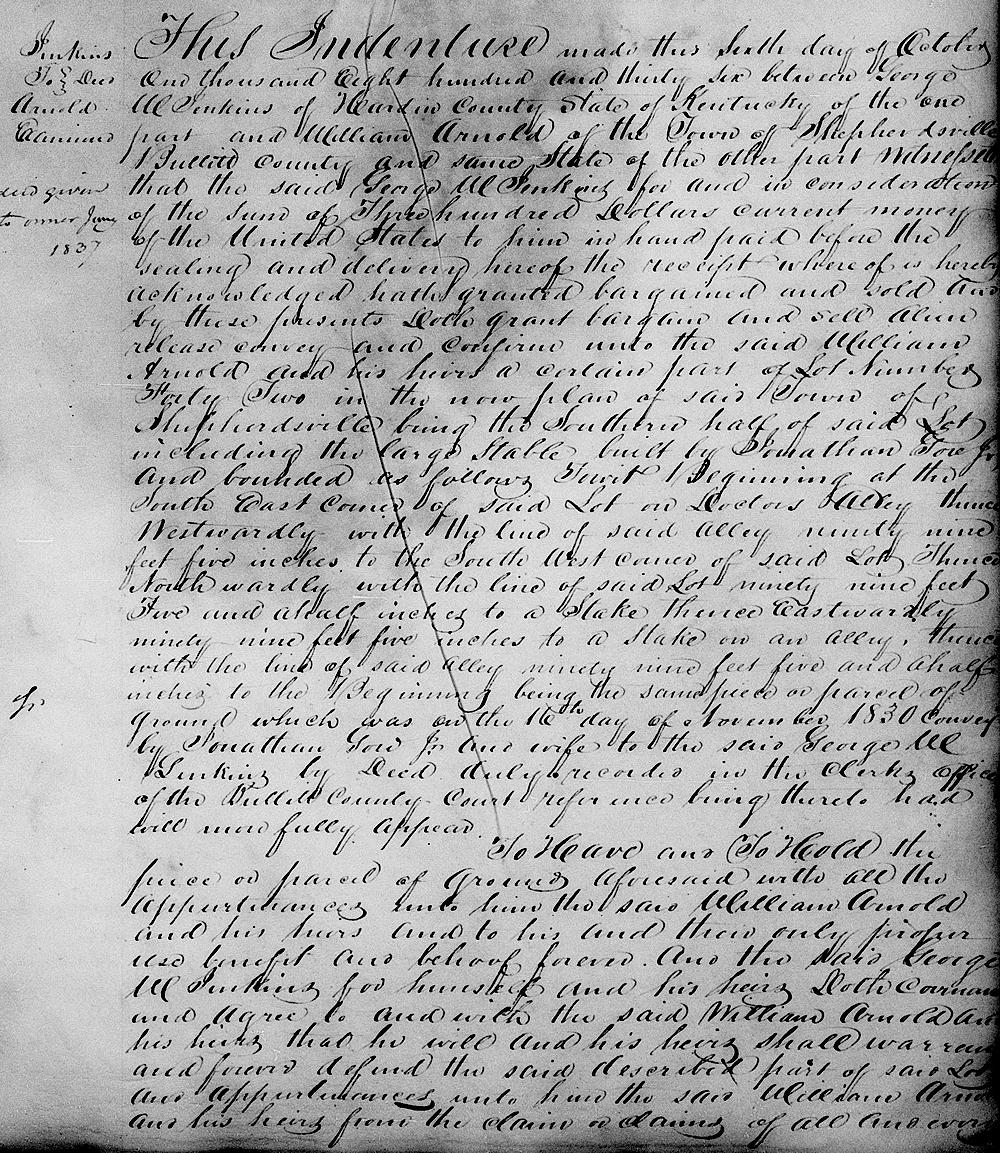 Jenkins
To } Deed
Arnold
Examined
deed given
to owner June
1837
This Indenture made this Sixth day of October
One thousand Eight hundred and thirty six between George
W Jenkins of Hardin County State of Kentucky of the one
part and William Arnold of the Town of Shepherdsville
Bullitt County and same State of the other part Witnesseth
that the said George W Jenkins for and in consideration
of the Sum of Three hundred Dollars current money
of the United States to him in hand paid before the
sealing and delivery hereof the receipt whereof is hereby
acknowledged hath granted bargained and sold and
by these presents Doth grant bargain and sell alien
release convey and confirm unto the said William
Arnold and his heirs a certain part of Lot Number
Forty Two in the now plan of said Town of
Shepherdsville being the Southern half of said Lot
including the large Stable built by Jonathan Gore Jr
and bounded as follows Towit Beginning at the
South East Corner of said Lot on Doctors Alley thence
Westwardly with the line of said Alley ninety nine
feet five inches to the South West corner of said Lot Thence
Northwardly with the line of said Lot ninety nine feet
Five and a half inches to a Stake thence Eastwardly
ninety nine feet five inches to a Stake on an alley, thence
with the line of said Alley ninety nine feet five and a half
inches to the Beginning being the same piece or parcel of
ground which was on the 16th day of November 1830 convey
by Jonathan Gore Jr and wife to the said George W
Jenkins by Deed duly recorded in the Clerks office
of the Bullitt County Court reference being thereto had
will more fully appear.
To Have and To Hold the
piece or parcel of ground aforesaid with all the
Appurtenances unto him the said William Arnold
and his heirs and to his and their only proper
use benefit and behoof forever. And the said George
W Jenkins for himself and his heirs Doth Covenant
and agree to and with the said William Arnold and
his heirs that he will and his heirs shall warrant
and forever defend the said described part of said Lot
and Appurtenances unto him the said William Arnold
and his heirs from the claim or claims of all and every
Jr